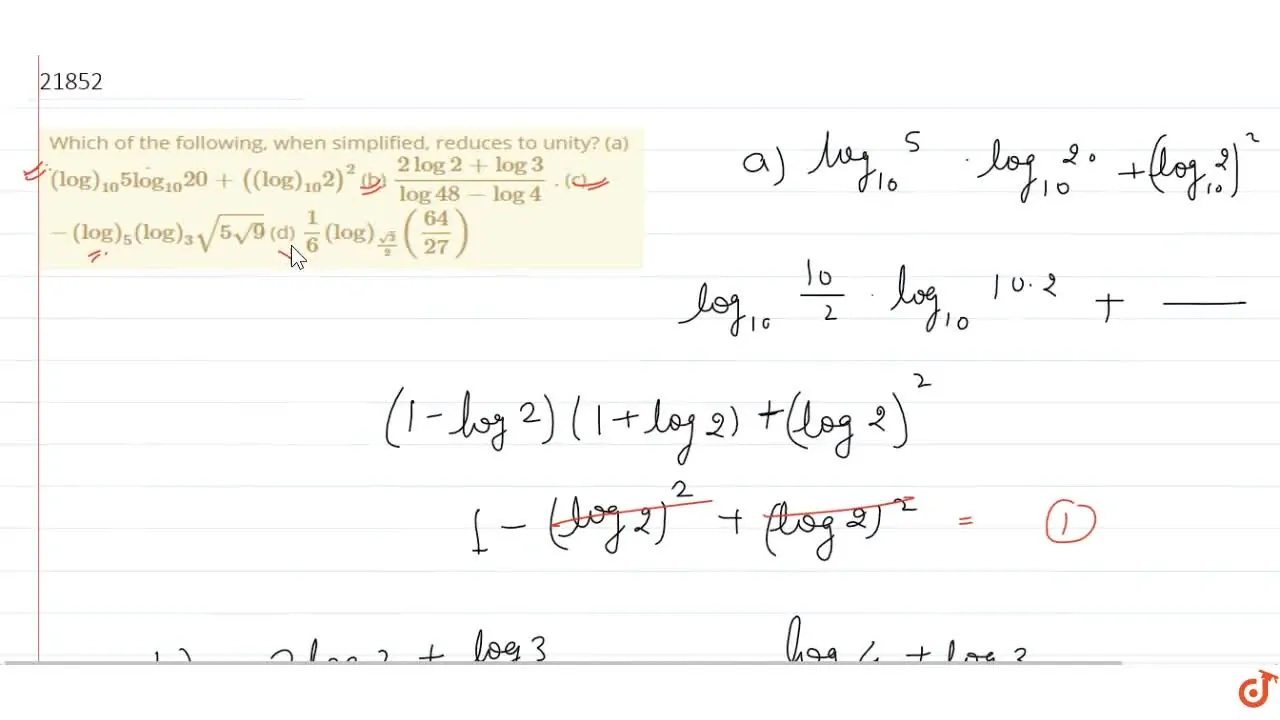 21852
Which of the following, when simplified, reduces to unity? (a)
(log)₁₀5log₁₀20 + ((log)₁₀2)² (b) (2 log 2 + log 3)/(log 48 − log 4) . (c)
−(log)₅(log)₃√(5√9) (d) 1/6 (log)_(√3/2) (64/27)
a) log₁₀5 · log₁₀20 + (log₁₀2)²
log₁₀ 10/2 · log₁₀ 10.2 + —
(1 − log 2) (1 + log 2) + (log 2)²
1 − (log 2)² + (log 2)² = 1